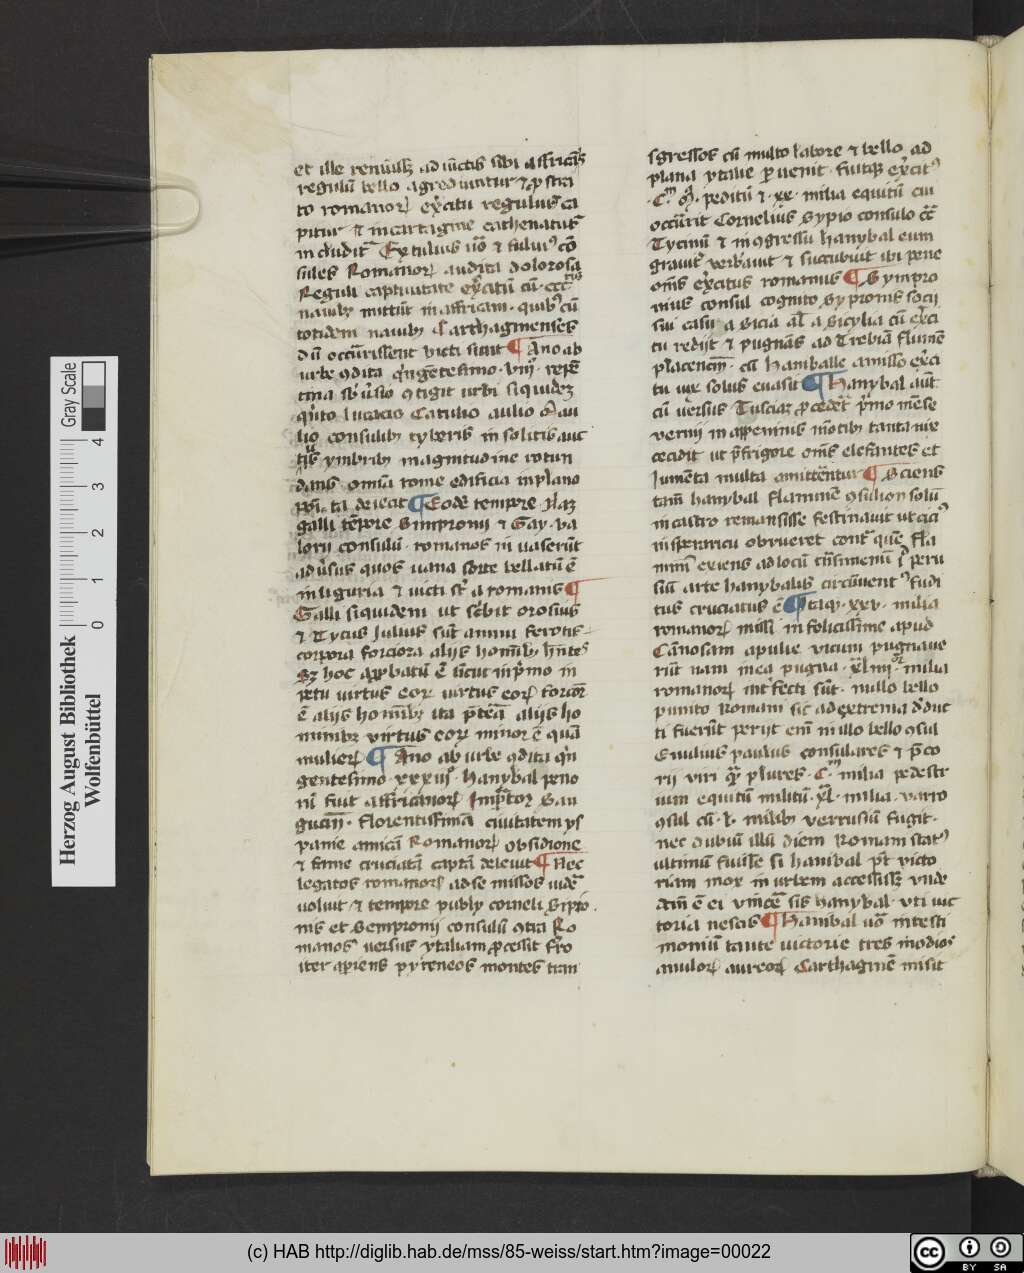 et ille renuisset ad iunctis sibi affricanis
regulum bello agrediuntur et prostra
to romanorum exercitu regulus ca
pitur et in cartagine cathenatus
includitur Emilius vero et fuluius con
sules Romanorum audita dolorosa
Reguli captiuitate
nauibus mittunt in affricam quibus cum
totidem nauibus Carthaginenses
dum occurrissent victi sunt ¶ Anno ab
urbe condita
Catulio aulio
lio consulibus tyberis insolitis auc
tus ymbribus magnitudine rotun
dans omnia rome edificia in plano
posita deiecit ¶ Eodem tempore
galli tempore Simpronii et Gay va
lerii consulum romanos inuaserunt
aduersus quos vana sorte bellatum est
in liguria et victi sunt a romanis ¶
Galli siquidem ut scribit orosius
et Tytus Julius sunt animi feroces
corpora forciora alijs hominibus habentes
Sed hoc approbatum est sicut in primo im
petu virtus eorum virtus eorum forcior
est alijs hominibus ita postea alijs ho
minibus virtus eorum minor est quam
mulierum ¶ Anno ab urbe condita quin
gentesimo xxxiiij Hanybal peno
rum fuit affricanorum Imperator Sa
guntinam florentissimam ciuitatem ys
panie amicam Romanorum obsidione
et fame cruciatam captam deleuit ¶ Nec
legatos romanorum ad se missos videre
voluit et tempore publy corneli Sipio
nis et Sempronii consulum contra Ro
manos versus ytaliam processit fero
iter apiens pyreneos montes tran
sgressos cum multo labore et bello ad
plana ytalie peruenit fuitque exercitus
peditum et xx milia equitum cui
occurrit Cornelius Sypio consul circa
Tycinum et in congressu hanybal eum
grauiter verberauit et succubuit ibi pene
omnis exercitus romanus ¶ Sympro
nius consul cognito Sypionis socii
sui casu a Sicia alias a Sicylia cum exerci
tu redijt et pugnans ad Trebiam flumen
cum Haniballe amisso exerci
tu vix solus euasit ¶ Hanybal autem
cum versus Tusciam procederet primo mense
vernij in appeninis montibus tanta nix
cecidit ut prefrigore omnes elefantes et
Jumenta multa amitterentur ¶ Sciens
tamen hanybal flaminem consulem solum
in castro remansisse festinauit ut
obrueret contra quem Fla
minius exiens ad locum
arte hanybalis circumuentus fudi
tus cruciatus est ¶ Itaque xxv milia
romanorum missi infelicissime apud
Canosam apulie vicum pugnaue
runt nam in ea pugna xliiij milia
romanorum interfecti sunt nullo bello
punico Romani sic ad extrema deduc
ti fuerunt perijt enim in illo bello consul
Emulius paulus consulares et preto
rij viri quam plures C milia pedestr
ium equitum militum xl milia varro
consul cum l milibus verrusium fugit
nec dubium illum diem Romani status
ultimum fuisse si hanibal post victo
riam mox in urbem accessisset vnde
dictum est ei vincere scis hanybal vti vic
toria nescis ¶ Hanibal vero in testi
monium tante victorie tres modios
anulorum aureorum Carthaginem misit
Herzog August Bibliothek
Wolfenbüttel
0 1 2 3 4
Gray Scale
(c) HAB http://diglib.hab.de/mss/85-weiss/start.htm?image=00022
cc BY SA